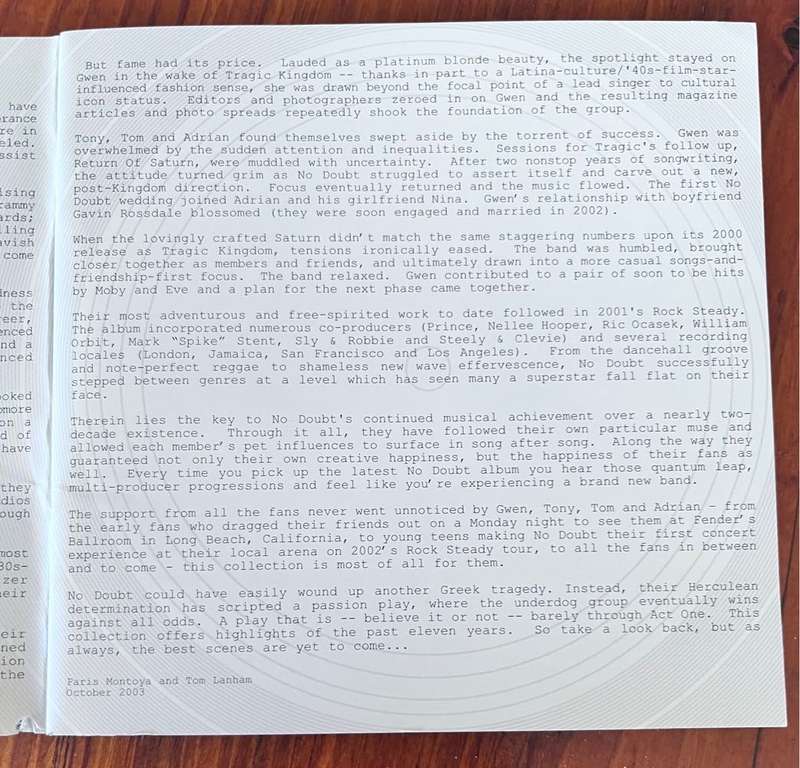 have
erance
re in
eled.
ssist
ising
rammy
ards;
lling
avish
come
dness
the
reer,
enced
nd a
nced
ooked
omore
on a
d of
have
they
dios
ough
most
80s-
zer
heir
eir
ned
ion
the
But fame had its price.  Lauded as a platinum blonde beauty, the spotlight stayed on
Gwen in the wake of Tragic Kingdom -- thanks in part to a Latina-culture/'40s-film-star-
influenced fashion sense, she was drawn beyond the focal point of a lead singer to cultural
icon status.  Editors and photographers zeroed in on Gwen and the resulting magazine
articles and photo spreads repeatedly shook the foundation of the group.
Tony, Tom and Adrian found themselves swept aside by the torrent of success.  Gwen was
overwhelmed by the sudden attention and inequalities.  Sessions for Tragic's follow up,
Return Of Saturn, were muddled with uncertainty.  After two nonstop years of songwriting,
the attitude turned grim as No Doubt struggled to assert itself and carve out a new,
post-Kingdom direction.  Focus eventually returned and the music flowed.  The first No
Doubt wedding joined Adrian and his girlfriend Nina.  Gwen's relationship with boyfriend
Gavin Rossdale blossomed (they were soon engaged and married in 2002).
When the lovingly crafted Saturn didn't match the same staggering numbers upon its 2000
release as Tragic Kingdom, tensions ironically eased.  The band was humbled, brought
closer together as members and friends, and ultimately drawn into a more casual songs-and-
friendship-first focus.  The band relaxed.  Gwen contributed to a pair of soon to be hits
by Moby and Eve and a plan for the next phase came together.
Their most adventurous and free-spirited work to date followed in 2001's Rock Steady.
The album incorporated numerous co-producers (Prince, Nellee Hooper, Ric Ocasek, William
Orbit, Mark "Spike" Stent, Sly & Robbie and Steely & Clevie) and several recording
locales (London, Jamaica, San Francisco and Los Angeles).  From the dancehall groove
and note-perfect reggae to shameless new wave effervescence, No Doubt successfully
stepped between genres at a level which has seen many a superstar fall flat on their
face.
Therein lies the key to No Doubt's continued musical achievement over a nearly two-
decade existence.  Through it all, they have followed their own particular muse and
allowed each member's pet influences to surface in song after song.  Along the way they
guaranteed not only their own creative happiness, but the happiness of their fans as
well.  Every time you pick up the latest No Doubt album you hear those quantum leap,
multi-producer progressions and feel like you're experiencing a brand new band.
The support from all the fans never went unnoticed by Gwen, Tony, Tom and Adrian – from
the early fans who dragged their friends out on a Monday night to see them at Fender's
Ballroom in Long Beach, California, to young teens making No Doubt their first concert
experience at their local arena on 2002's Rock Steady tour, to all the fans in between
and to come – this collection is most of all for them.
No Doubt could have easily wound up another Greek tragedy. Instead, their Herculean
determination has scripted a passion play, where the underdog group eventually wins
against all odds.  A play that is -- believe it or not -- barely through Act One.  This
collection offers highlights of the past eleven years.  So take a look back, but as
always, the best scenes are yet to come...
Paris Montoya and Tom Lanham
October 2003